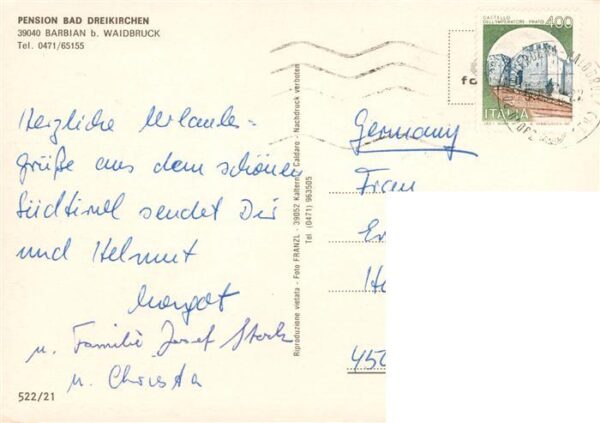 PENSION BAD DREIKIRCHEN
39040 BARBIAN b. WAIDBRUCK
Tel. 0471/65155
Herzliche Urlaubs-
grüße aus dem schönen
Südtirol sendet Dir
und Helmut
Margot
u. Familie Josef Stock
u. Christa
522/21
Riproduzione vietata - Foto FRANZL - 39052 Kaltern - Caldaro - Nachdruck verboten
Tel (0471) 963505
CASTELLO
DELL'IMPERATORE - PRATO
400
ITALIA
Germany
Frau